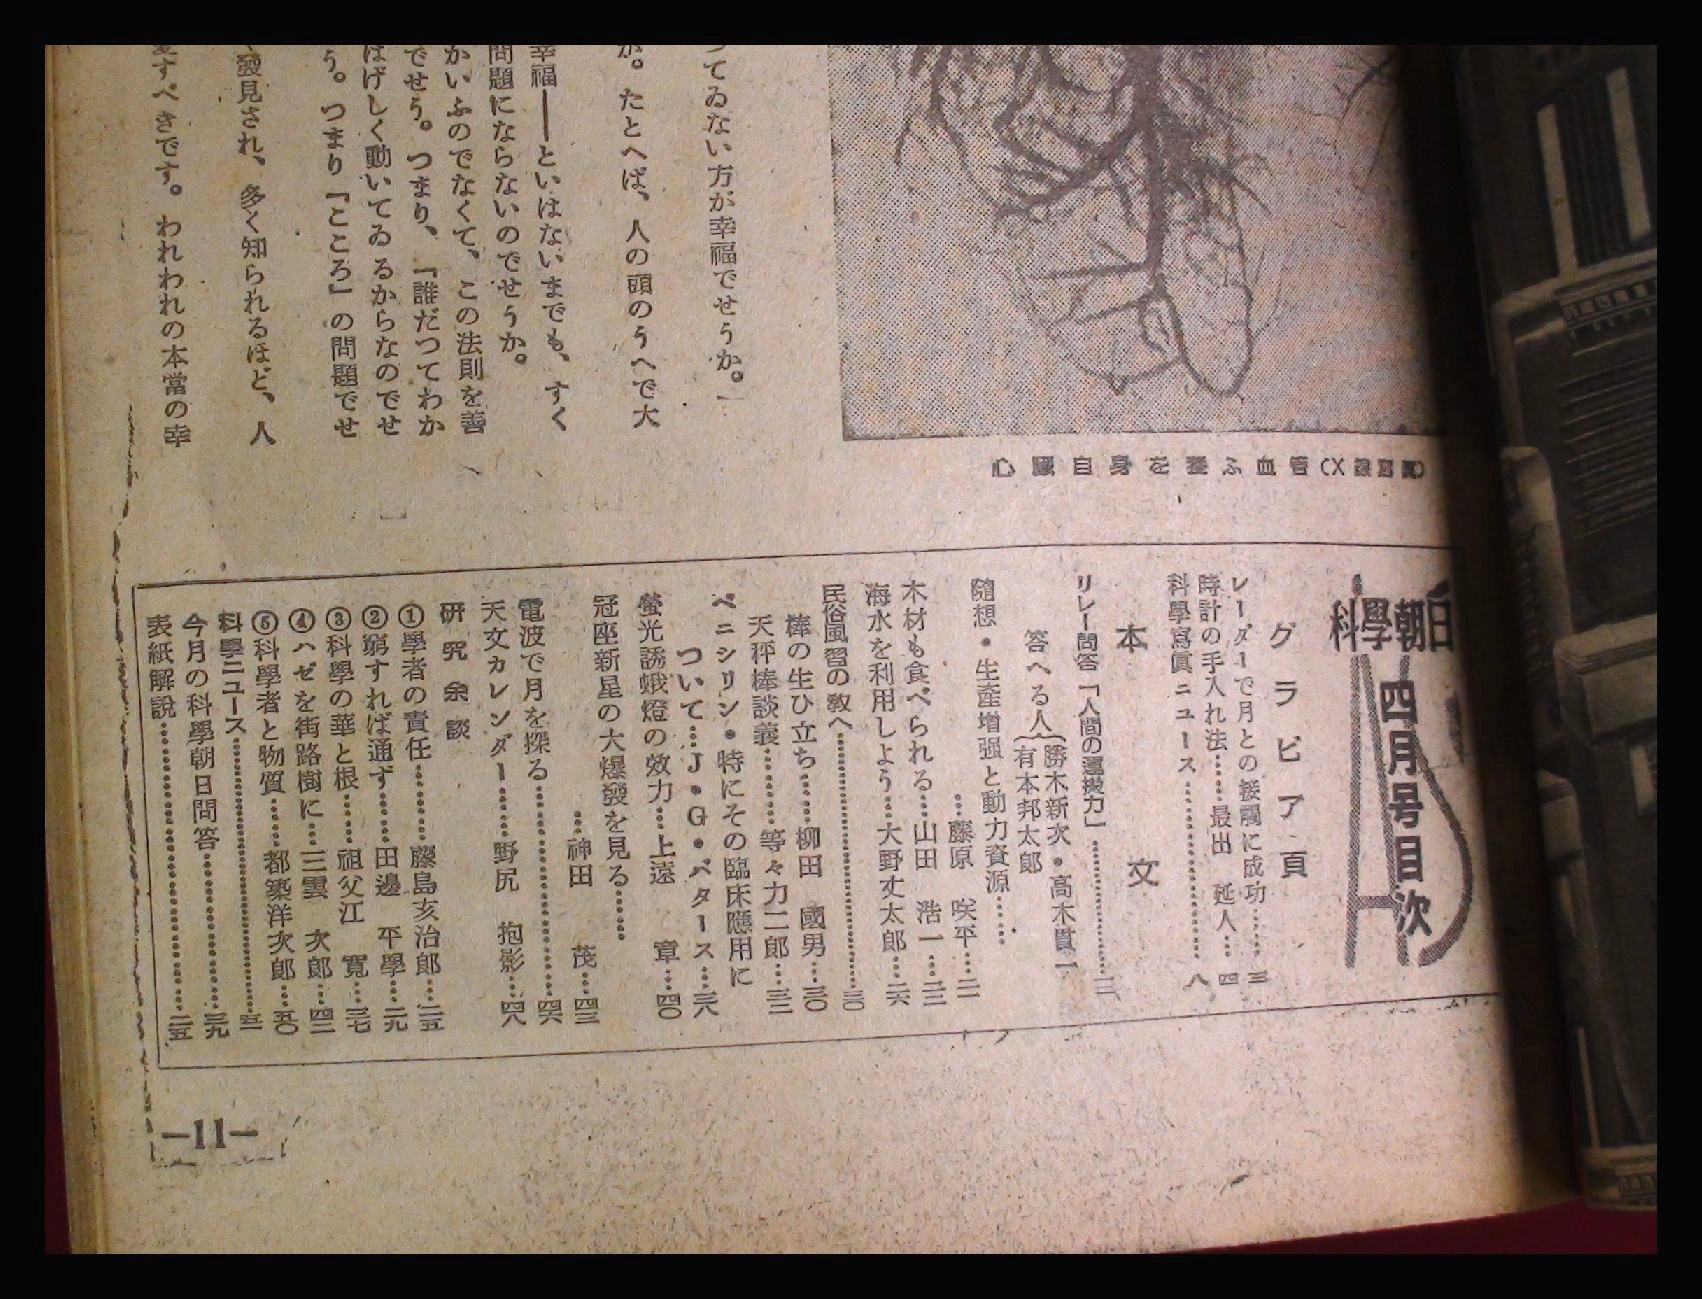 つてゐない方が幸福でせうか。
か。たとへば、人の頭のうへで大
幸福――といはないまでも、すく
問題にならないのでせうか。
かいふのでなくて、この法則を善
でせう。つまり、『誰だつてわか
はげしく動いてゐるからなのでせ
う。つまり『こころ』の問題でせ
發見され、多く知られるほど、人
すべきです。われわれの本當の幸
心臟自身を養ふ血管(X線寫眞)
科學朝日
四月号目次
グラビア頁
レーダーで月との接觸に成功……三
時計の手入れ法……最出 延人…四
科學寫眞ニュース……八
本文
リレー問答「人間の運搬力」……一二
答へる人(勝木新次・高木貫一
有本邦太郎
隨想・生産増强と動力資源……
…藤原 咲平…二一
木材も食べられる…山田 浩一…二三
海水を利用しよう…大野丈太郎…二六
民俗風習の敎へ……三〇
棒の生ひ立ち……柳田 國男…三〇
天秤棒談義……等々力二郎…三三
ペニシリン・特にその臨床應用に
ついて…J・G・バタース…三八
螢光誘蛾燈の效力…上遠 章…四〇
冠座新星の大爆發を見る……
…神田 茂…四三
電波で月を探る……四六
天文カレンダー……野尻 抱影…四八
硏究余談
①學者の責任……藤島亥治郎…二五
②窮すれば通ず……田邊 平學…二九
③科學の華と根……祖父江 寬…三七
④ハゼを街路樹に…三雲 次郎…四二
⑤科學者と物質……都築洋次郎…五〇
科學ニュース……五一
今月の科學朝日問答……三九
表紙解說……二五
—11—